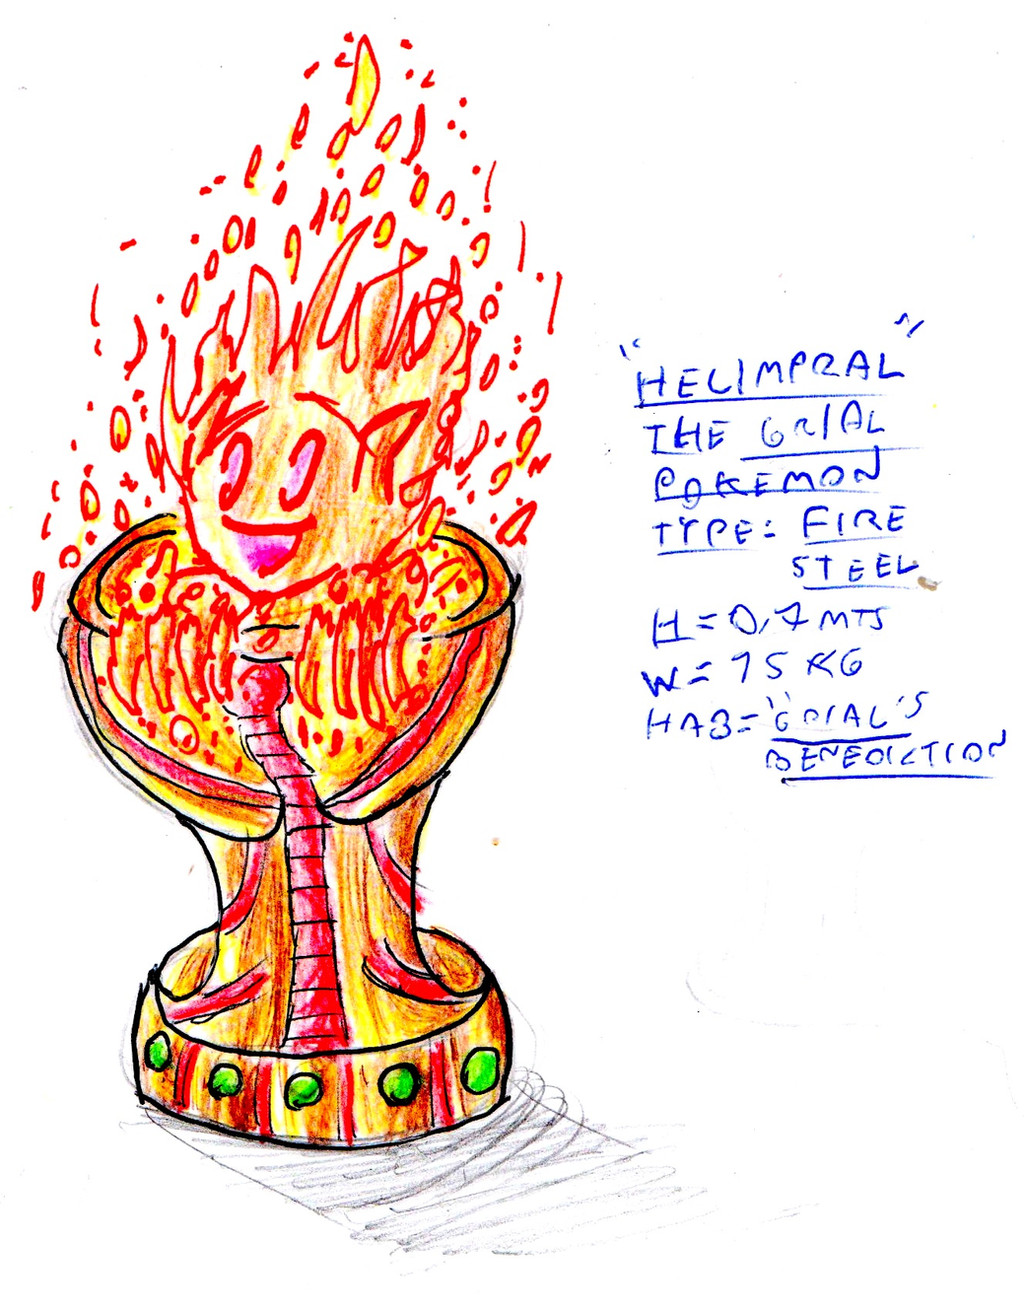 "HELIMPRAL"
THE GRIAL
POKEMON
TYPE: FIRE
STEEL
H=0,7 MTS
W=15 KG
HAB="GRIAL'S
BENEDICTION